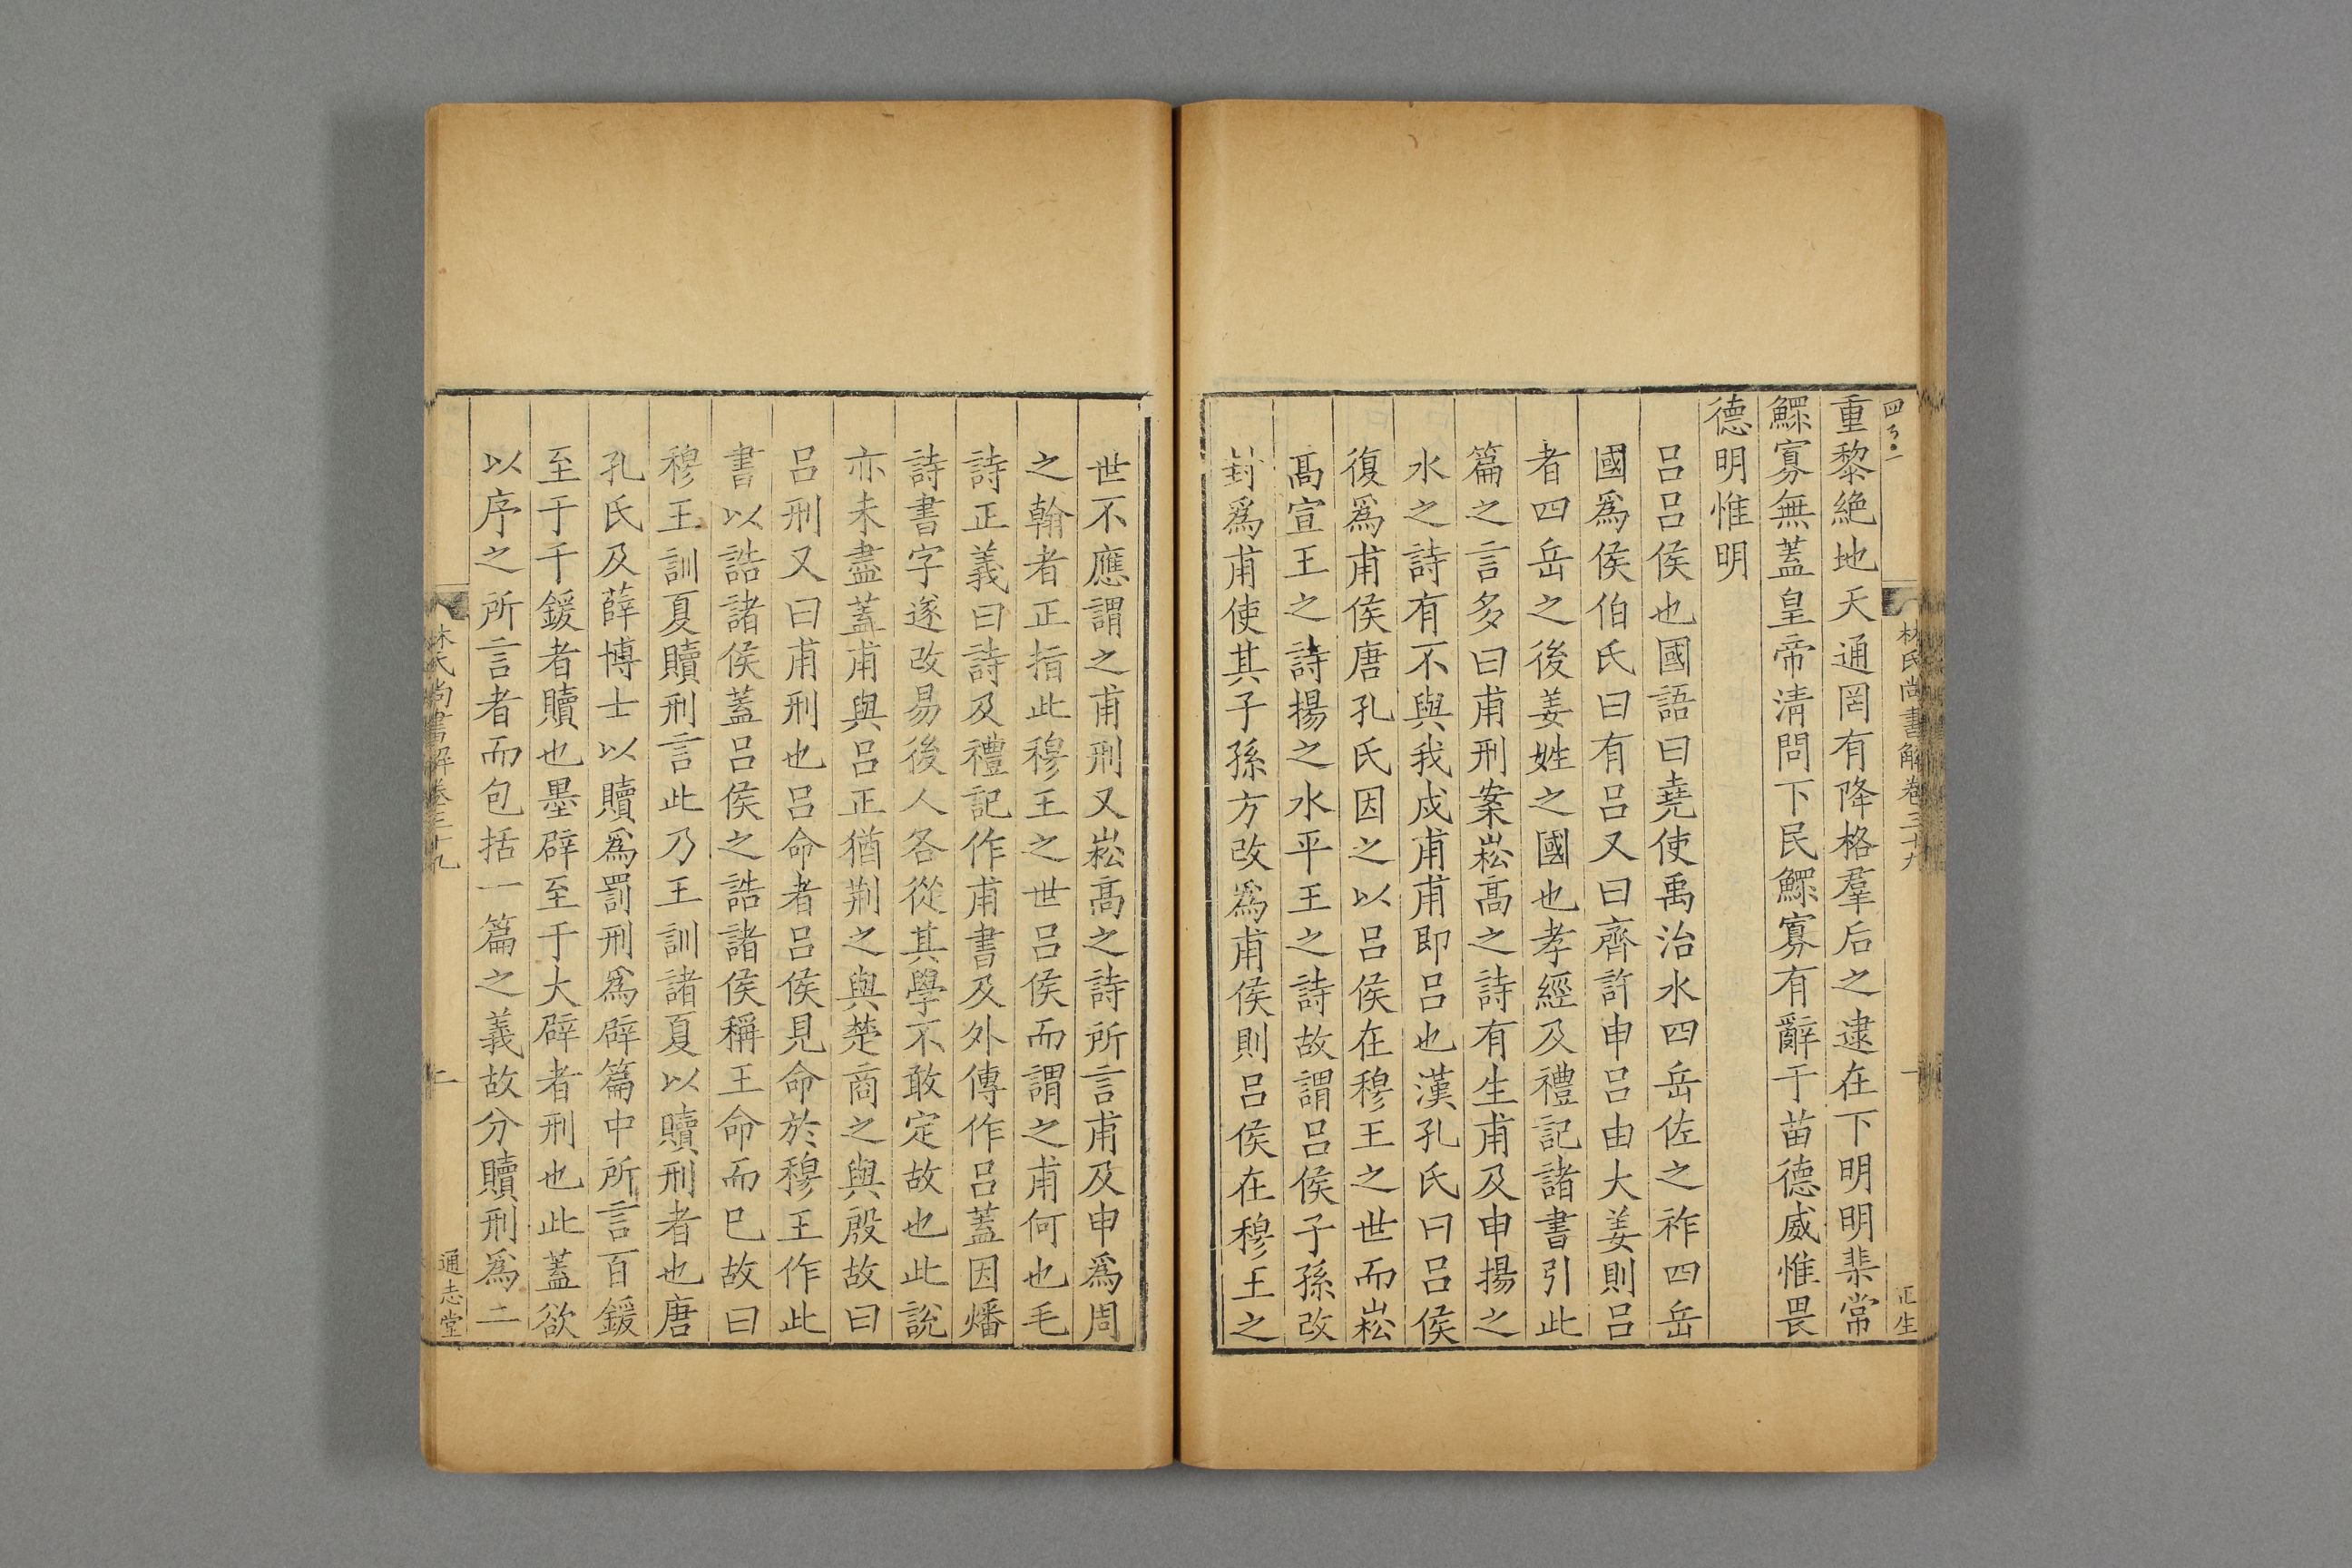 林氏尚書解卷三十九
一
正生
重黎絶地天通罔有降格羣后之逮在下明明棐常
鰥寡無蓋皇帝清問下民鰥寡有辭于苗德威惟畏
德明惟明
呂呂侯也國語曰堯使禹治水四岳佐之祚四岳
國爲侯伯氏曰有呂又曰齊許申呂由大姜則呂
者四岳之後姜姓之國也孝經及禮記諸書引此
篇之言多曰甫刑案崧高之詩有生甫及申揚之
水之詩有不與我戍甫甫即呂也漢孔氏曰呂侯
復爲甫侯唐孔氏因之以呂侯在穆王之世而崧
高宣王之詩揚之水平王之詩故謂呂侯子孫改
封爲甫使其子孫方改爲甫侯則呂侯在穆王之
世不應謂之甫刑又崧高之詩所言甫及申爲周
之翰者正指此穆王之世呂侯而謂之甫何也毛
詩正義曰詩及禮記作甫書及外傳作呂蓋因燔
詩書字遂改易後人各從其學不敢定故也此說
亦未盡蓋甫與呂正猶荆之與楚商之與殷故曰
呂刑又曰甫刑也呂命者呂侯見命於穆王作此
書以誥諸侯蓋呂侯之誥諸侯稱王命而巳故曰
穆王訓夏贖刑言此乃王訓諸夏以贖刑者也唐
孔氏及薛博士以贖爲罰刑爲辟篇中所言百鍰
至于千鍰者贖也墨辟至于大辟者刑也此蓋欲
以序之所言者而包括一篇之義故分贖刑爲二
林氏尚書解卷三十九
二
通志堂